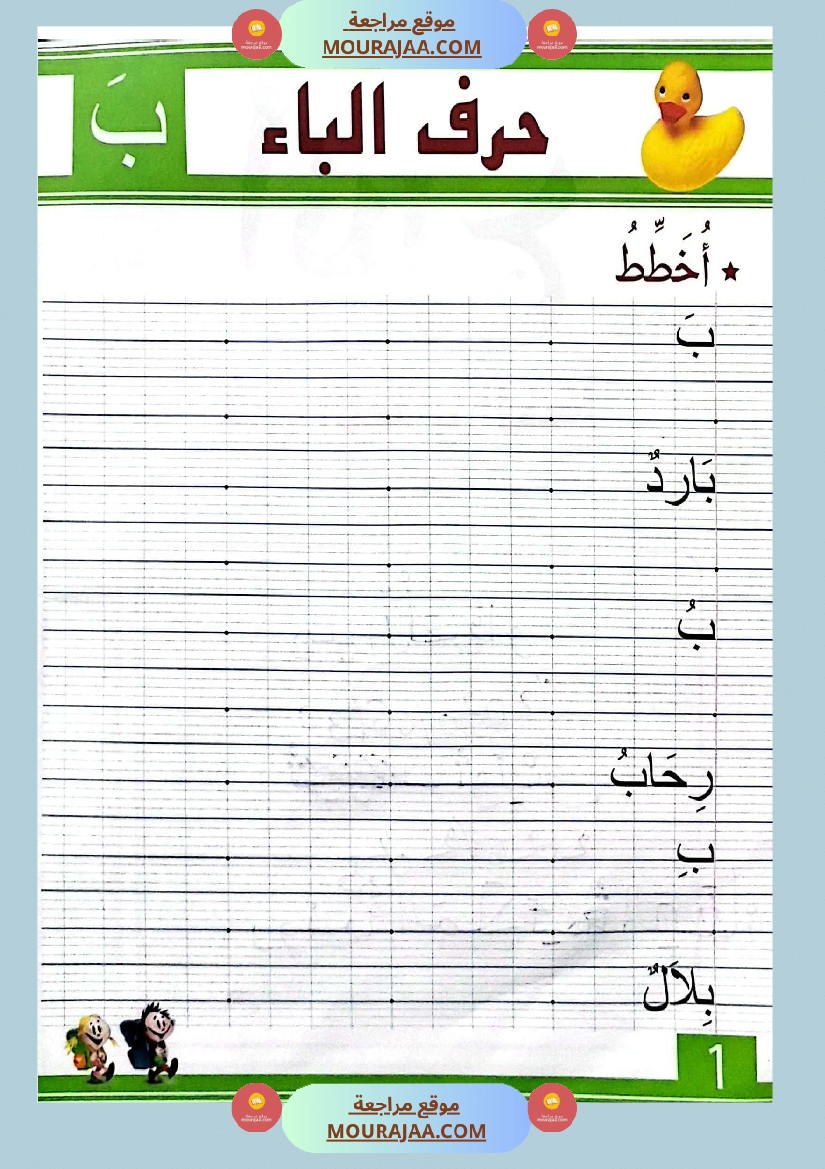 موقع مراجعة
MOURAJAA.COM
بَ
حرف الباء
أُخَطِّطُ
بَ
بَارِدٌ
بُ
رِحَابُ
بِ
بِلَالٌ
1
موقع مراجعة
MOURAJAA.COM